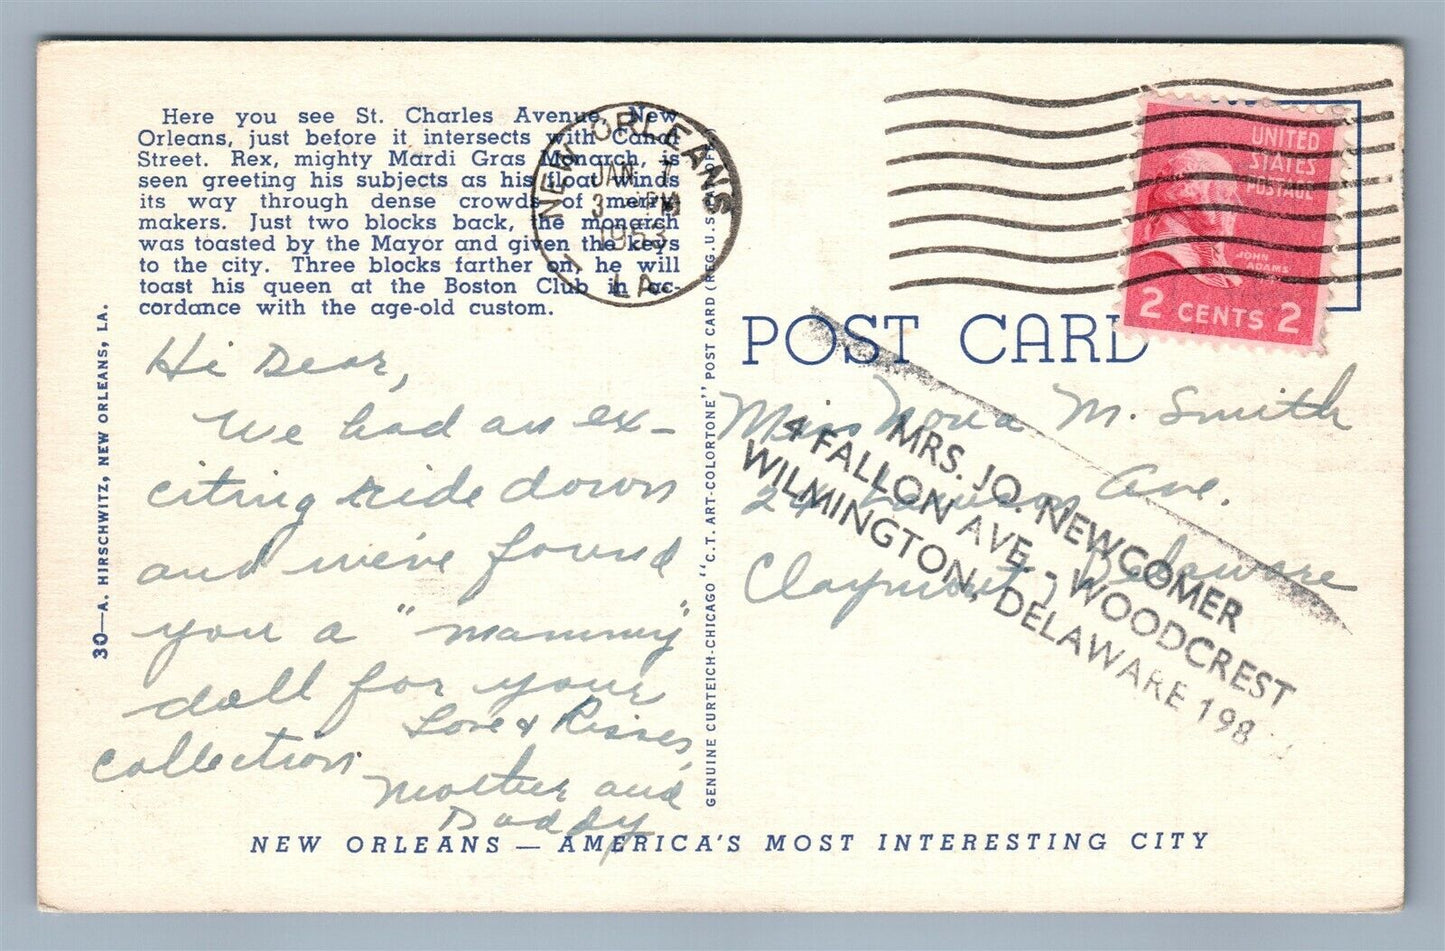 Here you see St. Charles Avenue, New
Orleans, just before it intersects with Canal
Street. Rex, mighty Mardi Gras Monarch, is
seen greeting his subjects as his float winds
its way through dense crowds of merry-
makers. Just two blocks back, the monarch
was toasted by the Mayor and given the keys
to the city. Three blocks farther on, he will
toast his queen at the Boston Club in ac-
cordance with the age-old custom.
NEW ORLEANS
JAN
3 PM
1953
LA.
UNITED
STATES
POSTAGE
JOHN
ADAMS
2 CENTS 2
POST CARD
Hi Dear,
We had an ex-
citing ride down
and we've found
you a "mammy"
doll for your
collection.
Love & Kisses,
Mother and
Daddy
Miss Nona M. Smith
24 Ave.
Claymont, Delaware
MRS. JO. NEWCOMER
4 FALLON AVE. - WOODCREST
WILMINGTON, DELAWARE 198
30—A. HIRSCHWITZ, NEW ORLEANS, LA.
GENUINE CURTEICH-CHICAGO "C.T. ART-COLORTONE" POST CARD (REG. U.S.
NEW ORLEANS — AMERICA'S MOST INTERESTING CITY